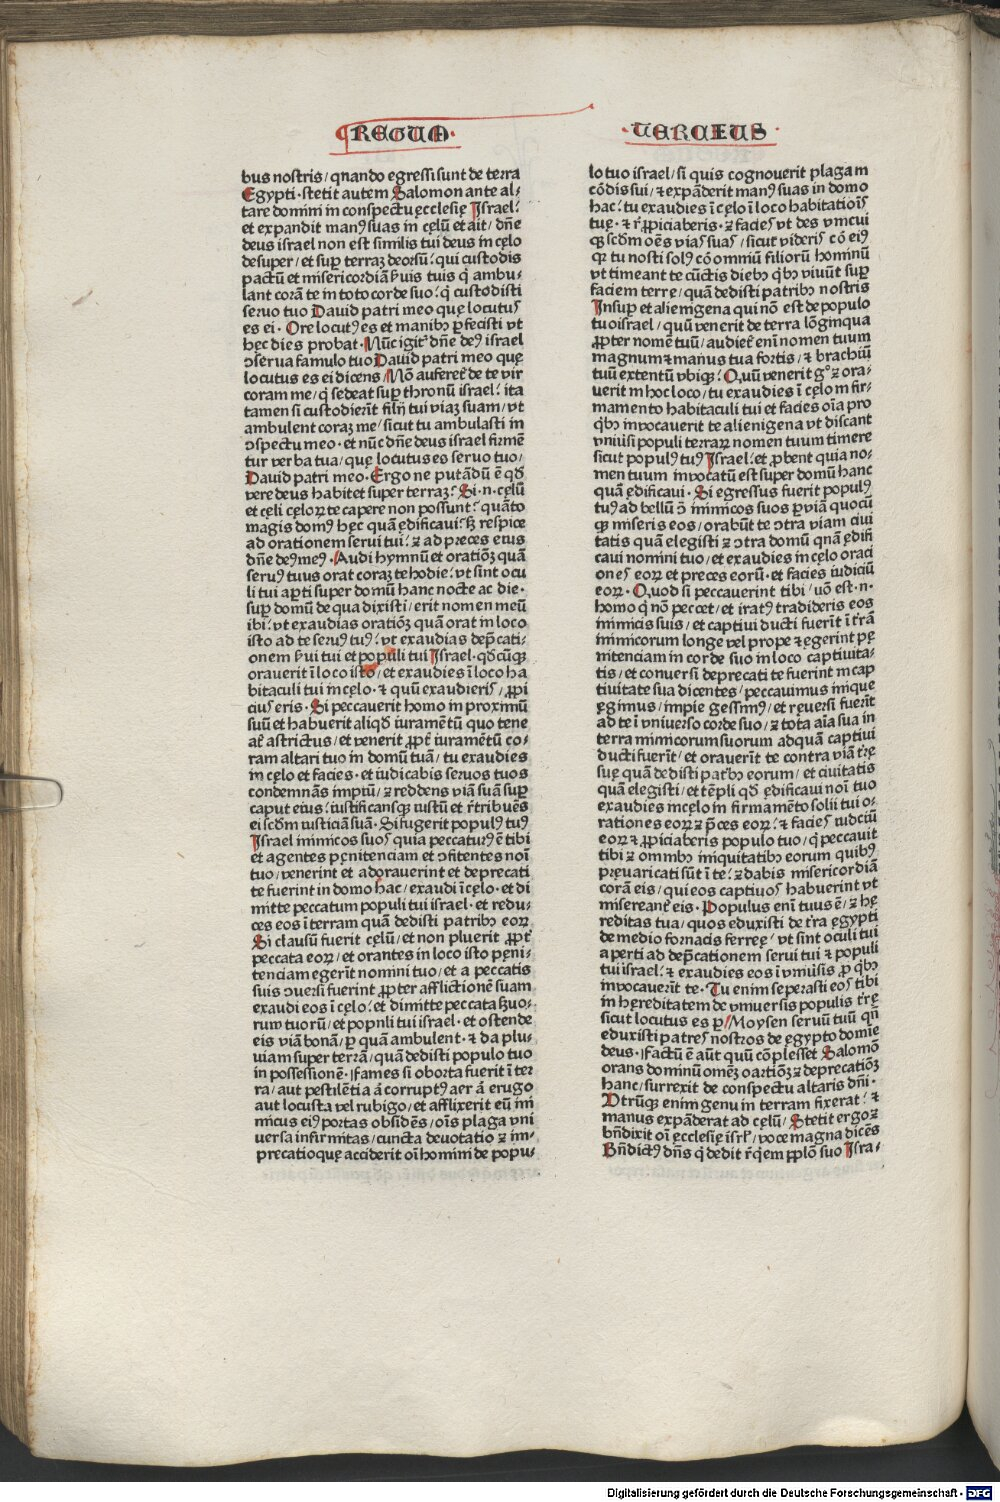 REGUM·
·TERCIUS·
bus nostris/ qnando egressi sunt de terra
Egypti·stetit autem Salomon ante al⸗
tare domini in conspectu ęcclesię Israel:
et expandit manꝰ suas in cęlū et ait/ dn̄e
deus israel non est similis tui deus in cęlo
desuper/ et sup̄ terraꝫ deorsū: qui custodis
pactū et misericordiā s̄uis tuis q̇ ambu⸗
lant corā te in toto corde suo: q̇ custodisti
seruo tuo Dauid patri meo quę locutus
es ei· Ore locutꝰ es et manibꝫ ꝑfecisti vt
hęc dies probat·Nūc igit̄ dn̄e deꝰ israel
ↄserua famulo tuo Dauid patri meo quę
locutus es ei dicens/ Nō auferet̄ de te vir
coram me/ q̇ sedeat sup̄ thronū israel: ita
tamen si custodierīt filij tui viaꝫ suam/ vt
ambulent coraꝫ me/ sicut tu ambulasti in
ↄspectu meo·et nūc dn̄e deus israel firmē
tur verba tua/ quę locutus es seruo tuo/
Dauid patri meo·Ergo ne putādū ē qd̄
vere deus habitet super terraꝫ: Si·n·cęlū
et cęli cęloꝝ te capere non possunt: quāto
magis domꝰ hęc quā ędificaui: sꝫ respice
ad orationem serui tui: ⁊ ad preces eius
dn̄e deꝰ meꝰ·Audi hymnū et oratiōꝫ quā
seruꝰ tuus orat coraꝫ te hodie: vt sint ocu
li tui aꝑti super domū hanc nocte ac die·
sup̄ domū de qua dixisti/ erit nomen meū
ibi: vt exaudias oratiōꝫ quā orat in loco
isto ad te seruꝰ tuꝰ: vt exaudias dep̄cati⸗
onem s̄ui tui et populi tui Israel·qd̄cūqꝫ
orauerit ī loco isto/ et exaudies ī loco ha
bitaculi tui in cęlo·⁊ quū exaudieris/ ꝓpi
cius eris·Si peccauerit homo in proximū
suū et habuerit aliqd̄ iuramētū quo tene
at̄ astrictus/ et venerit ꝓpt̄ iuramētū co⸗
ram altari tuo in domū tuā/ tu exaudies
in cęlo et facies·et iudicabis seruos tuos
condemnās impiū/ ⁊ reddens viā suā sup̄
caput eius: iustificansqꝫ iustū et r̄tribuēs
ei scd̄m iusticiā suā·Si fugerit populꝰ tuꝰ
Israel inimicos suos quia peccaturꝰ ē tibi
et agentes pęnitenciam et ↄfitentes noī
tuo/ venerint et adorauerint et deprecati
te fuerint in domo hac/ exaudi ī cęlo·et di
mitte peccatum populi tui israel·et redu⸗
ces eos ī terram quā dedisti patribꝫ eoꝝ
Si clausū fuerit cęlū/ et non pluerit ꝓpt̄
peccata eoꝝ/ et orantes in loco isto pęni⸗
tenciam egerīt nomini tuo/ et a peccatis
suis ↄuersi fuerint ꝓpter afflictionē suam
exaudi eos ī cęlo: et dimitte peccata s̄uo⸗
rum tuorū/ et popnli tui israel·et ostende
eis viā bonā/ ꝑ quā ambulent·⁊ da plu⸗
uiam super terrā/ quā dedisti populo tuo
in possessionē·Fames si oborta fuerit ī ter
ra/ aut pestilētia á corruptꝰ aer á erugo
aut locusta vel rubigo/ et afflixerit eū ini
micus eiꝰ portas obsidēs/ oīs plaga vni
uersa infirmitas/ cuncta deuotatio ⁊ im⸗
precatio quę acciderit oī homini de popu⸗
lo tuo israel/ si quis cognouerit plagam
cōdis sui/ ⁊ expāderit manꝰ suas in domo
hac: tu exaudies ī cęlo ī loco habitatiōis
tuę·⁊ r̄ꝓpiciaberis·⁊ facies vt des vnicui
qꝫ scd̄m oēs vias suas/ sicut videris cō eiꝰ
qꝛ tu nosti solꝰ cō omniū filiorū hominū
vt timeant te cūctis diebꝫ q̇bꝫ viuūt sup̄
faciem terrę/ quā dedisti patribꝫ nostris
Insup̄ et alienigena qui nō est de populo
tuo israel/ quū venerit de terra lōginqua
ꝓpter nomē tuū/ audiet̄ enī nomen tuum
magnum ⁊ manus tua fortis/ ⁊ brachiū
tuū extentū vbiqꝫ: Quū venerit gͦ ⁊ ora⸗
uerit in hoc loco/ tu exaudies ī cęlo in fir⸗
mamento habitaculi tui et facies oīa pro
q̇bꝫ inuocauerit te alienigena vt discant
vniusi populi terraꝝ nomen tuum timere
sicut populꝰ tuꝰ Israel: et ꝓbent quia no⸗
men tuum inuocatū est super domū hanc
quā ędificaui·Si egressus fuerit populꝰ
tuꝰ ad bellū ↄ̄ inimicos suos ꝑ viā quocū
qꝫ miseris eos/ orabūt te ↄtra viam ciui
tatis quā elegisti ⁊ ↄtra domū qnā ędifi
caui nomini tuo/ et exaudies in cęlo oraci
ones eoꝝ et preces eorū·et facies iudiciū
eoꝝ·Quod si peccauerint tibi/ uō est·n·
homo q̇ nō peccet/ et iratꝰ tradideris eos
inimicis suis/ et captiui ducti fuerīt ī t̄rā
inimicorum longe vel prope ⁊ egerint pę
nitenciam in corde suo in loco captiuita⸗
tis/ et conuersi deprecati te fuerint in cap
tiuitate sua dicentes/ peccauimus inique
ęgimus/ impie gessimꝰ/ et reuersi fuerīt
ad te ī vniuerso corde suo/ ⁊ tota aīa sua in
terra inimicorum suorum ad quā captiui
ducti fuerīt/ et orauerīt te contra viā t̄rę
suę quā dedisti patribꝫ eorum/ et ciuitatis
quā elegisti/ et tēpli qd̄ ędificaui noī tuo
exaudies in cęlo in firmamēto solii tui o⸗
rationes eoꝝ ⁊ p̄ces eoꝝ: ⁊ facies iudciū
eoꝝ ⁊ ꝓpiciaberis populo tuo/ q̇ peccauit
tibi ⁊ omnibꝫ iniquitatibꝫ eorum quibꝰ
pręuaricati sūt ī te: ⁊ dabis misericordiā
corā eis/ qui eos captiuos habuerint vt
misereant̄ eis·Populus enī tuus ē/ ⁊ hę
reditas tua/ quos eduxisti de t̄ra ęgypti
de medio fornacis ferreę/ vt sint oculi tui
aperti ad dep̄cationem serui tui ⁊ populi
tui israel: ⁊ exaudies eos ī vniūsis ꝓ q̇bꝫ
inuocauerīt te·Tu enim seperasti eos tibi
in hęreditatem de vniuersis populis t̄rę
sicut locutus es ꝑ Moysen seruū tuū qn̄
eduxisti patres nostros de ęgypto domīe
deus·Factū ē aūt quū cōplesset Salomō
orans dominū omēꝫ oartiōꝫ ⁊ deprecatiōꝫ
hanc/ surrexit de conspectu altaris dn̄i·
Vtrūqꝫ enim genu in terram fixerat: ⁊
manus expāderat ad cęlū/ Stetit ergo ⁊
bn̄dixit oī ecclesię isrl̄/ voce magna dicēs
Bn̄dictꝰ dn̄s q̇ dedit r̄q̇em ꝓplō suo Isra⸗
Digitalisierung gefördert durch die Deutsche Forschungsgemeinschaft - DFG